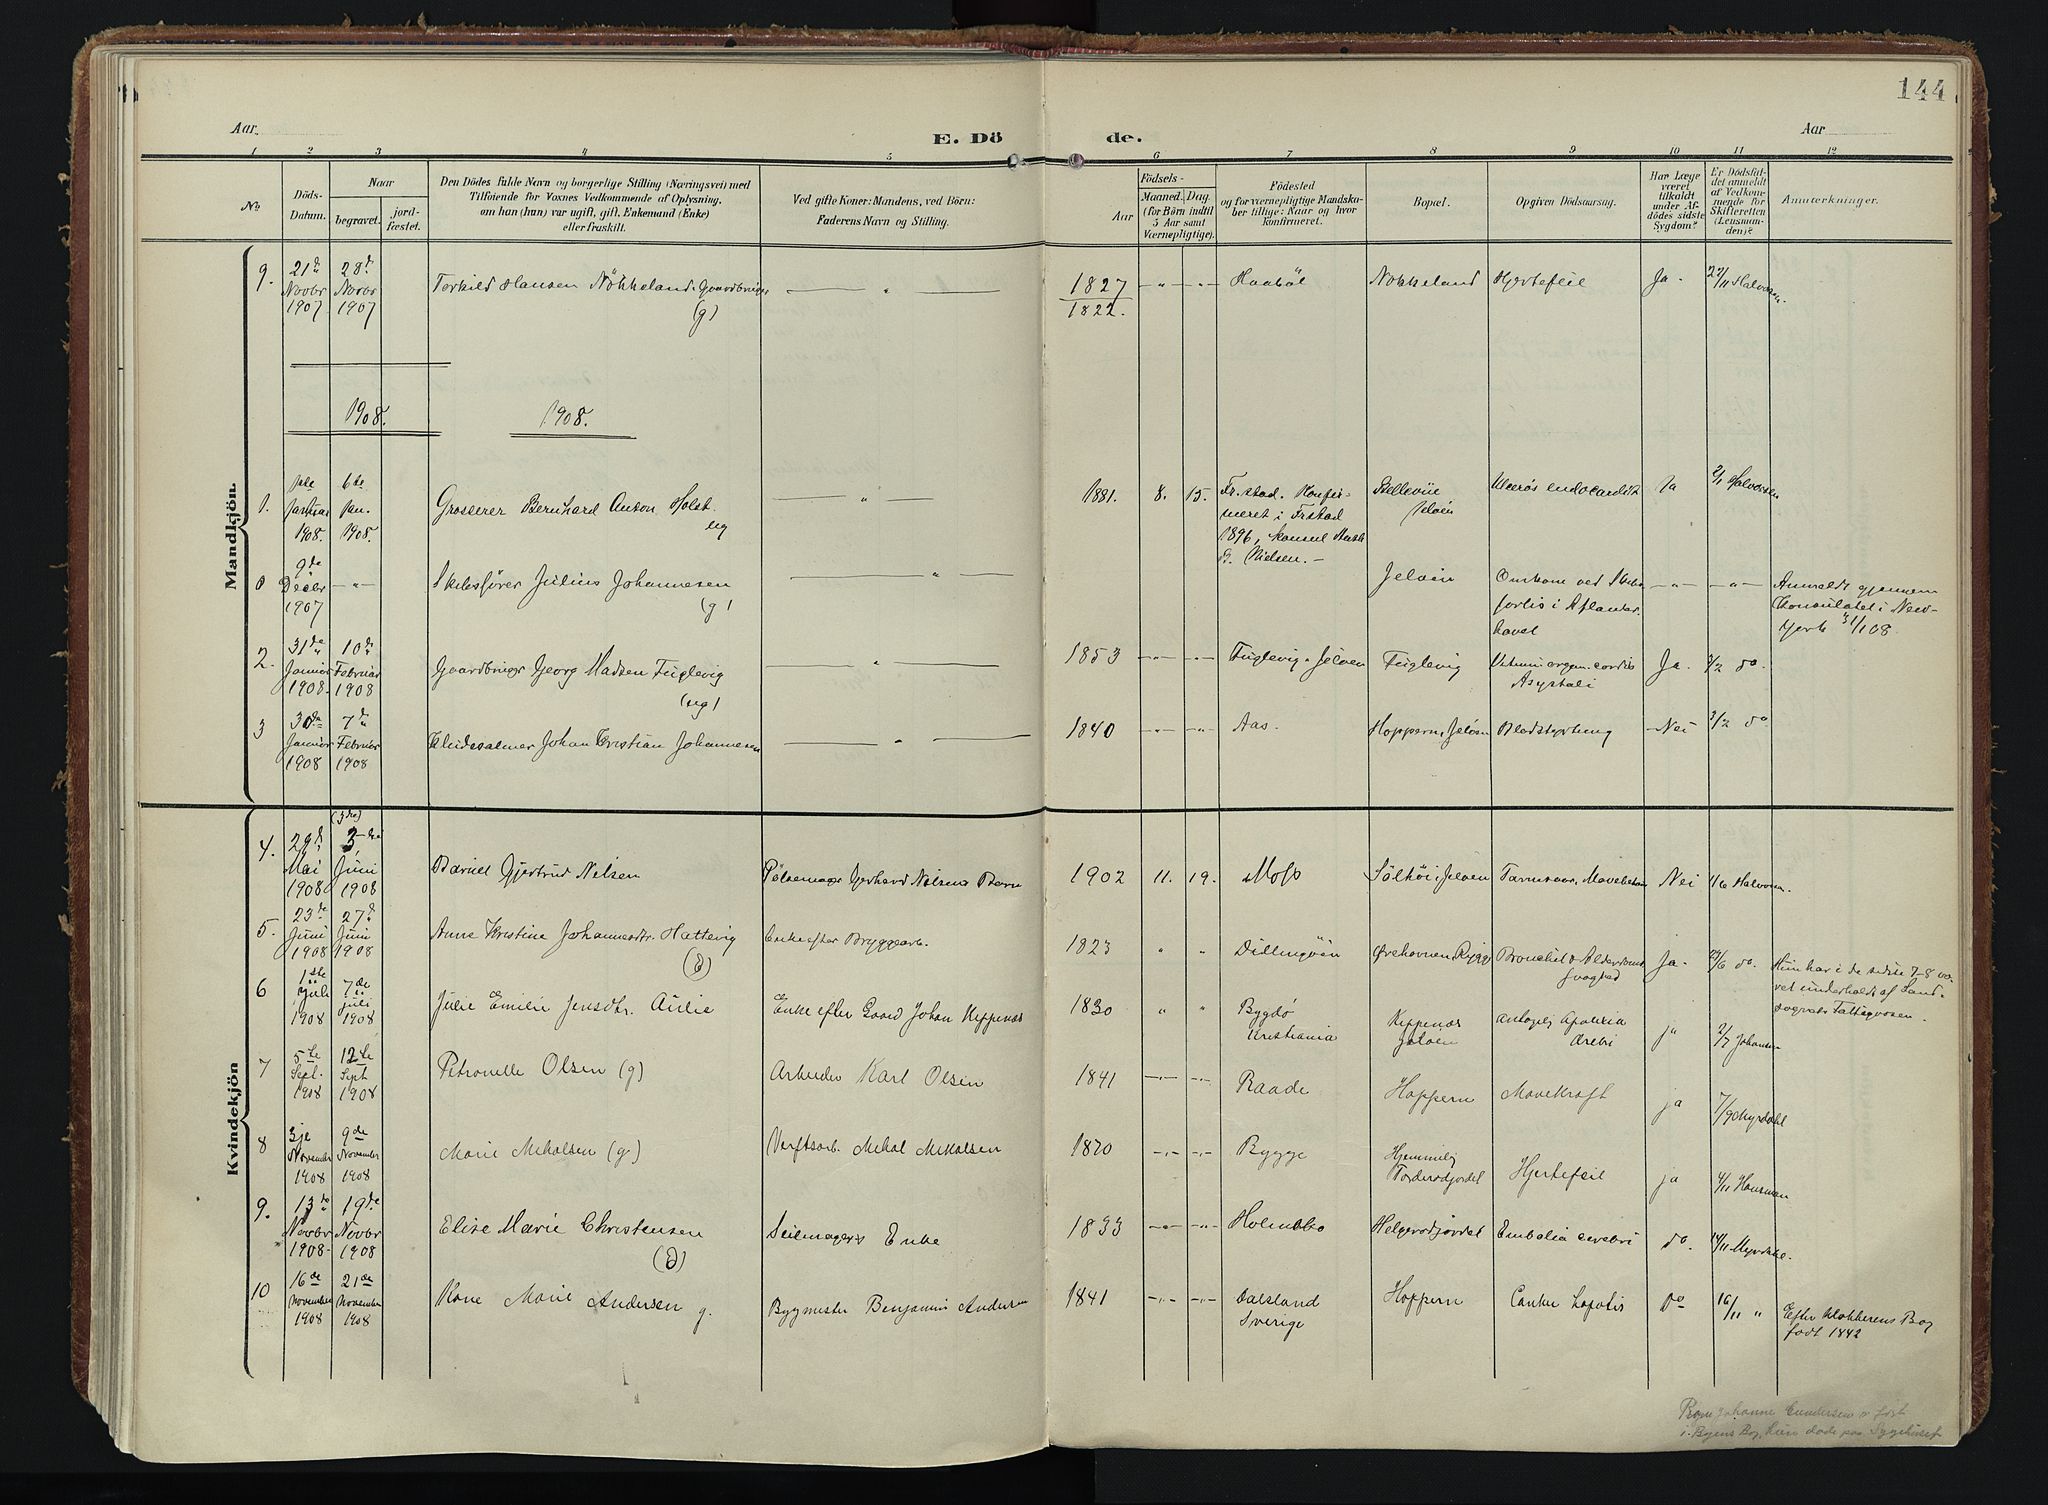 144
Aar
E. Dö
de.
Aar
1 2 3 4 5 6 7 8 9 10 11 12
No
Döds-
Datum.
Naar
begravet.
jord-
fæstet.
Den Dödes fulde Navn og borgerlige Stilling (Næringsvei) med
Tilföiende for Voxnes Vedkommende af Oplysning,
om han (hun) var ugift, gift, Enkemand (Enke)
eller fraskilt.
Ved gifte Koner: Mandens, ved Börn:
Faderens Navn og Stilling.
Aar
Födsels-
Maaned. Dag.
(for Börn indtil
5 Aar samt
Værnepligtige).
Födested
og for værnepligtige Mandska-
ber tillige: Naar og hvor
konfirmeret.
Bopæl.
Opgiven Dödsaarsag.
Har Læge
været
tilkaldt
under Af-
dödes sidste
Sygdom?
Er Dödsfal-
det anmeldt
af Vedkom-
mende for
Skifteretten
(Lensman-
den)?
Anmærkninger.
Mandkjön.
9. 21de Novbr 1907 28de Novbr 1907 Torkild Hansen Nökkeland Gaardbruger (g) — " — 1827 / 1822. — " — " — Haaböl Nökkeland Hjertefeil Ja. 22/11 Halvorsen
1908. 1908.
1. 1ste Januar 1908. 6te Jan. 1908. Grosserer Bernhard Anton Holst ug — " — 1881. 8. 15. Fr.stad. Konfir-
meret i Frstad
1896,
Nielsen. —
Bellevue Jelöen Ulcerös endocardit Ja 2/1 Halvorsen
0 9de Decbr 1907 — " — Skibsförer Julius Johannesen (g) — " — Jelöen Omkom ved Skibs-
forlis i Atlanter-
havet — " — — " — Anmeldt gjennem
Konsulatet i New-
York 31/1 08.
2. 31de Januar 1908. 10de Februar 1908 Gaardbruger Georg Madsen Fuglevig (ug) — " — 1853 — " — " — Fuglevig, Jelöen Fuglevig Vitium organ. cordis
Asystoli Ja. 3/2 do.
3 30de Januar 1908 7de Februar 1908 Kludesamler Johan Kristian Johannesen — " — 1840 — " — " — Aas. Hoppern, Jelöen Blodstyrtning Nei 3/2 do
Kvindekjön
4. 29de Mai 1908 (3die) 3die Juni 1908 Barnet Gjertrud Nilsen Pölsemager Gerhard Nilsens Barn 1902 11. 19. Moss Sölhöi, Jelöen Tarmsaar, Nei 1/6 Halvorsen.
5. 23de Juni 1908 27de Juni 1908 Anne Kristine Johannesdtr. Hattevig (E) Enke efter Bryggearb. 1823 " " Dillingöen Ørehavnen, Rygge Bronchit & Alderdoms-
svaghed Ja. 23/6 do. Hun har i de sidste 7-8 væ-
ret underholdt af Land-
sognets Fattigvæsen.
6 1ste Juli 1908 7de juli 1908 Julie Emilie Jensdtr. Aulie Enke efter Gaard Johan Kippenæs 1830 " " Bygdö
Kristiania Kippenæs
Jelöen antagelig Apoplexia
cerebri ja 2/7 Johansen
7 5te Sept. 1908 12te Sept 1908 Petronelle Olsen (g) Arbeider Karl Olsen 1841 — " — " — Raade Hoppern Mavekræft ja 7/9 Myrdahl
8 3je November 1908 9de November 1908 Marie Mikalsen (g) Verftsarb. Mikal Mikalsen 1870 — " — " — Rygge Hjemmelig
Torderödjordet Hjertefeil ja 4/11 Hansman
9. 13de Novbr 1908 19de Novbr 1908 Elise Marie Christensen (E) Seilmagers Enke 1833 — " — " — Holmsbo Helgerödjordet Embolia cerebri do. 14/11 Myrdahl.
10 16de November 1908 21de November 1908 Kone Marie Andersen g. Bygmester Benjamin Andersen 1841 — " — " — Dalsland
Sverige Hoppern Cancer hepatis Do 16/11 " Efter Klokkerens Bog
født 1842
Johanne Gundersen er fört
i Byens Bog, hun döde paa Sygehuset